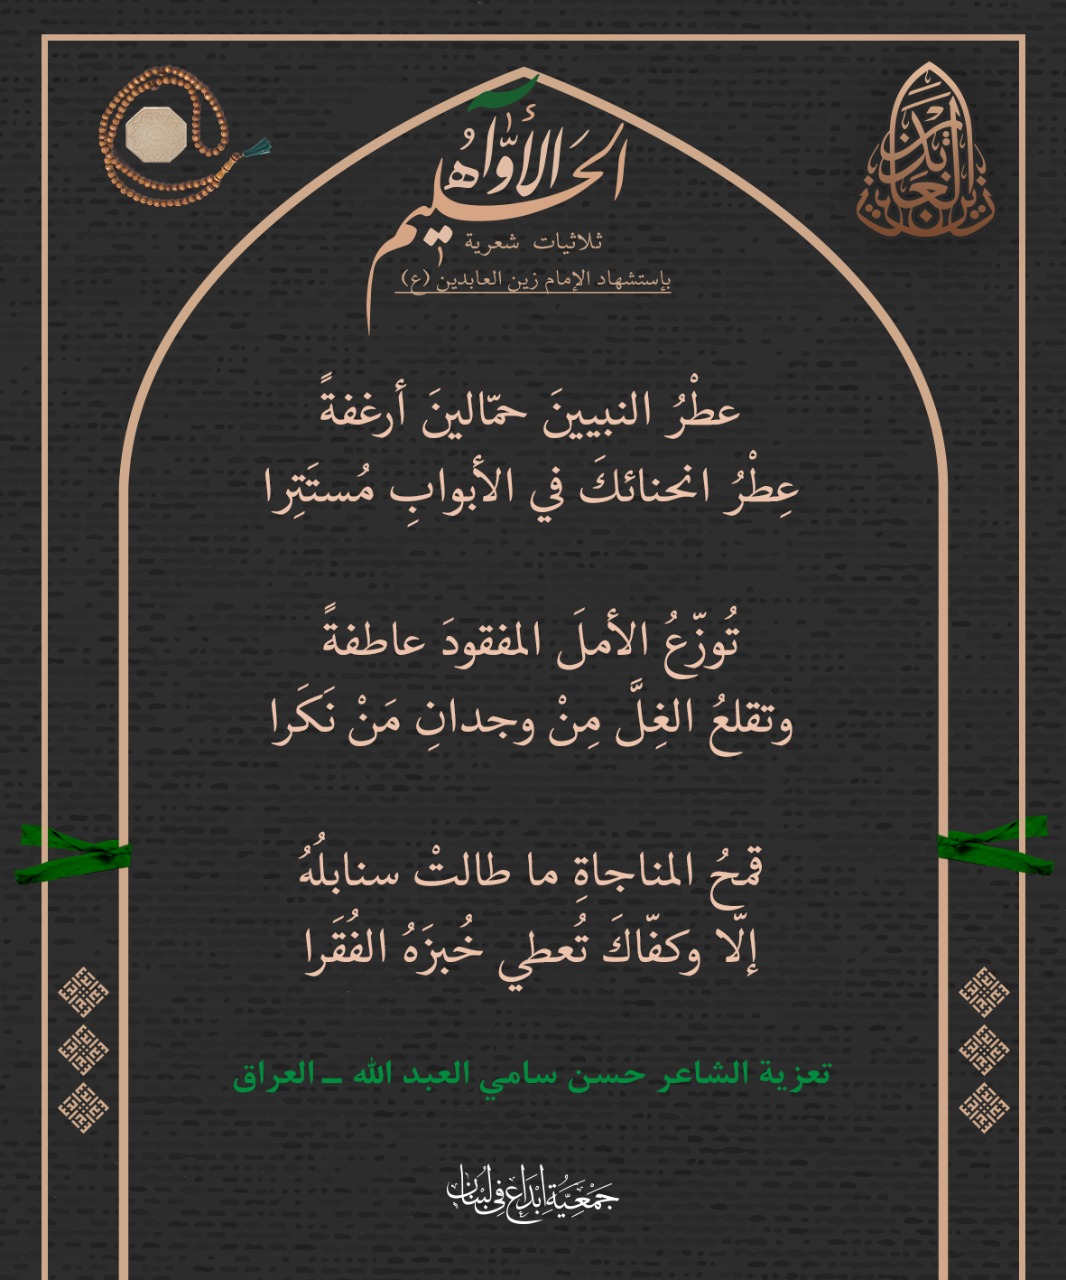 زين العابدين
الأوّاه الحليم
ثلاثيات شعرية
بإستشهاد الإمام زين العابدين (ع)
عطْرُ النبيينَ حمّالينَ أرغفةً
عِطْرُ انحنائكَ في الأبوابِ مُستَتِرا
تُوزّعُ الأملَ المفقودَ عاطفةً
وتقلعُ الغِلَّ مِنْ وجدانِ مَنْ نَكَرا
قمحُ المناجاةِ ما طالتْ سنابلُهُ
إلّا وكفّاكَ تُعطي خُبزَهُ الفُقَرا
تعزية الشاعر حسن سامي العبد الله ــ العراق
جَمْعِيَّةُ إبْدَاع فِي لبْنَان